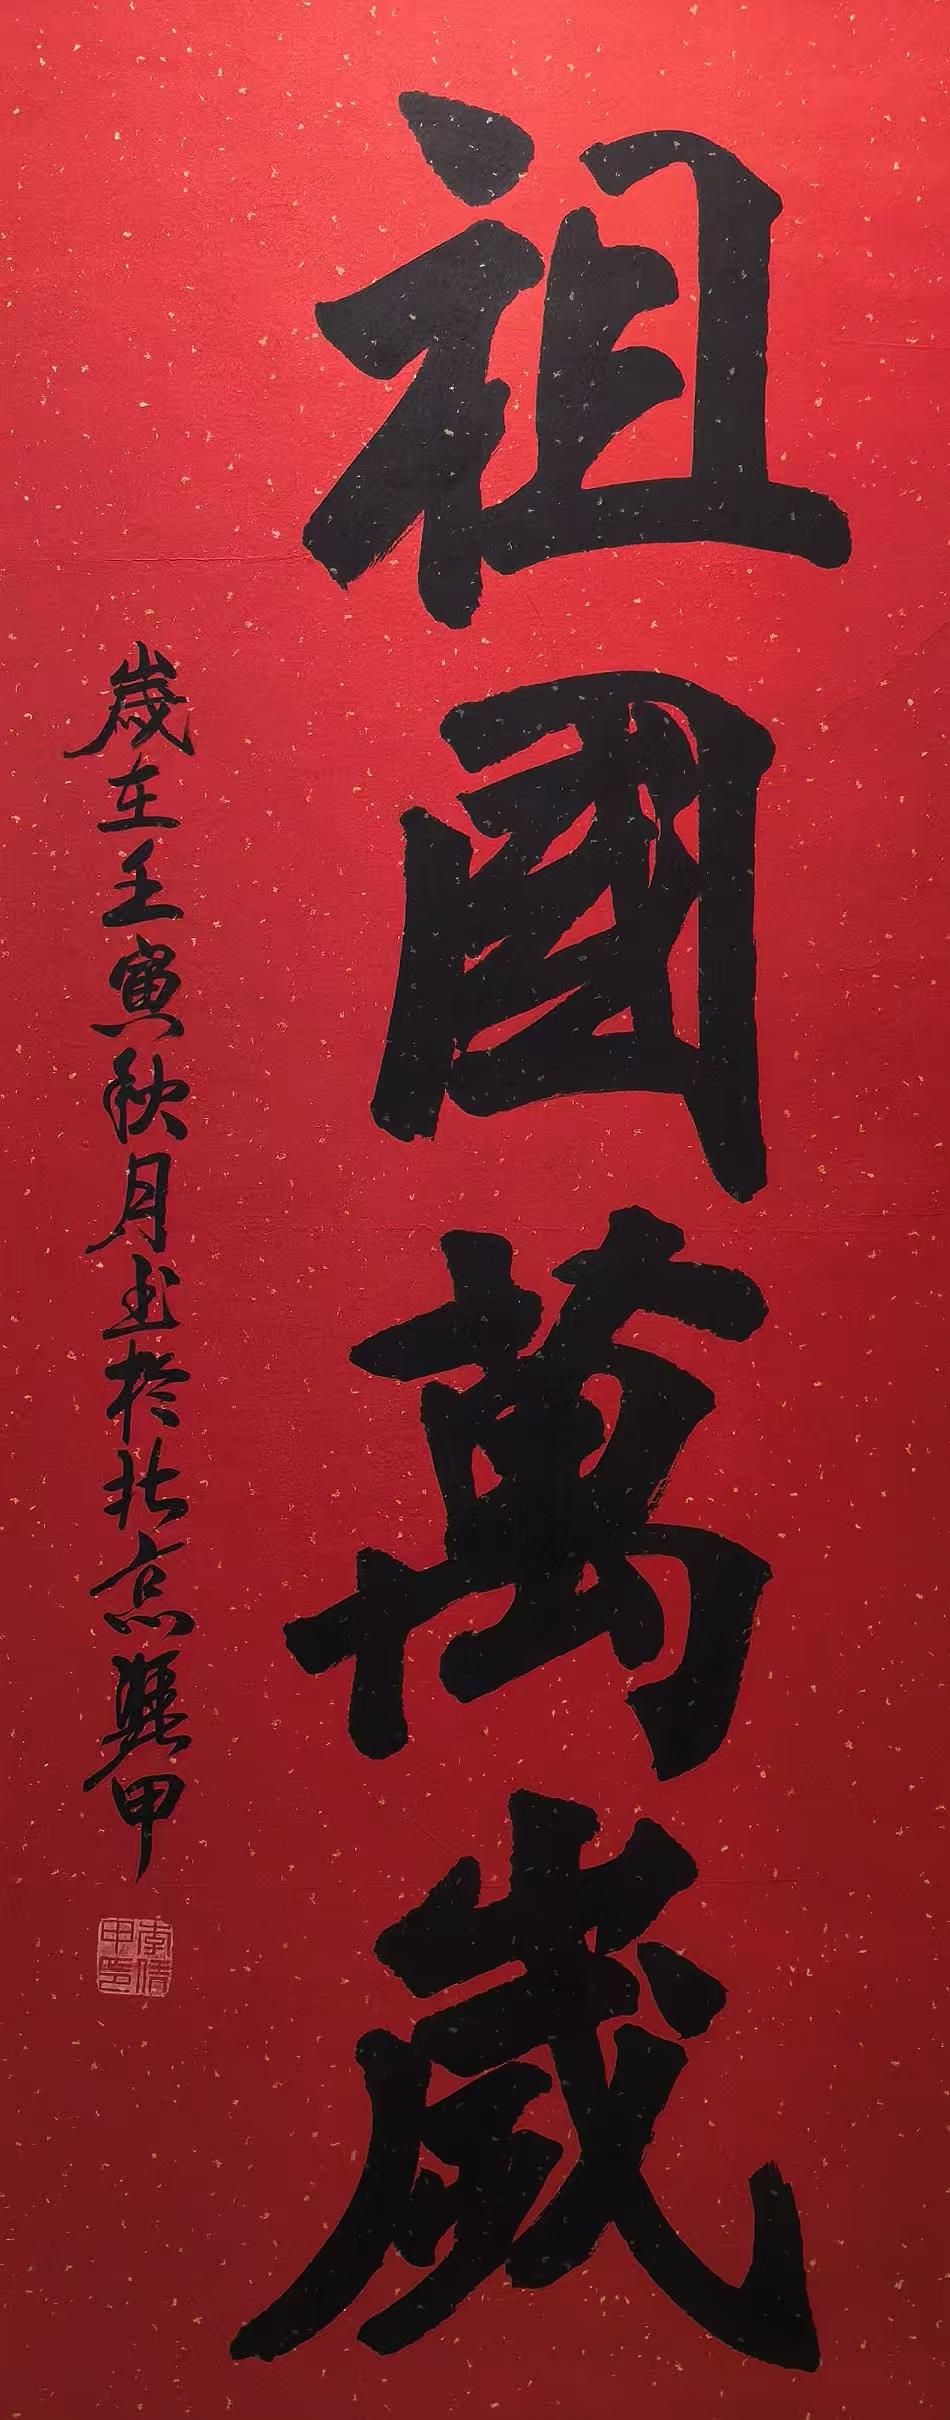 祖國萬歲
歲在壬寅秋月書於北京